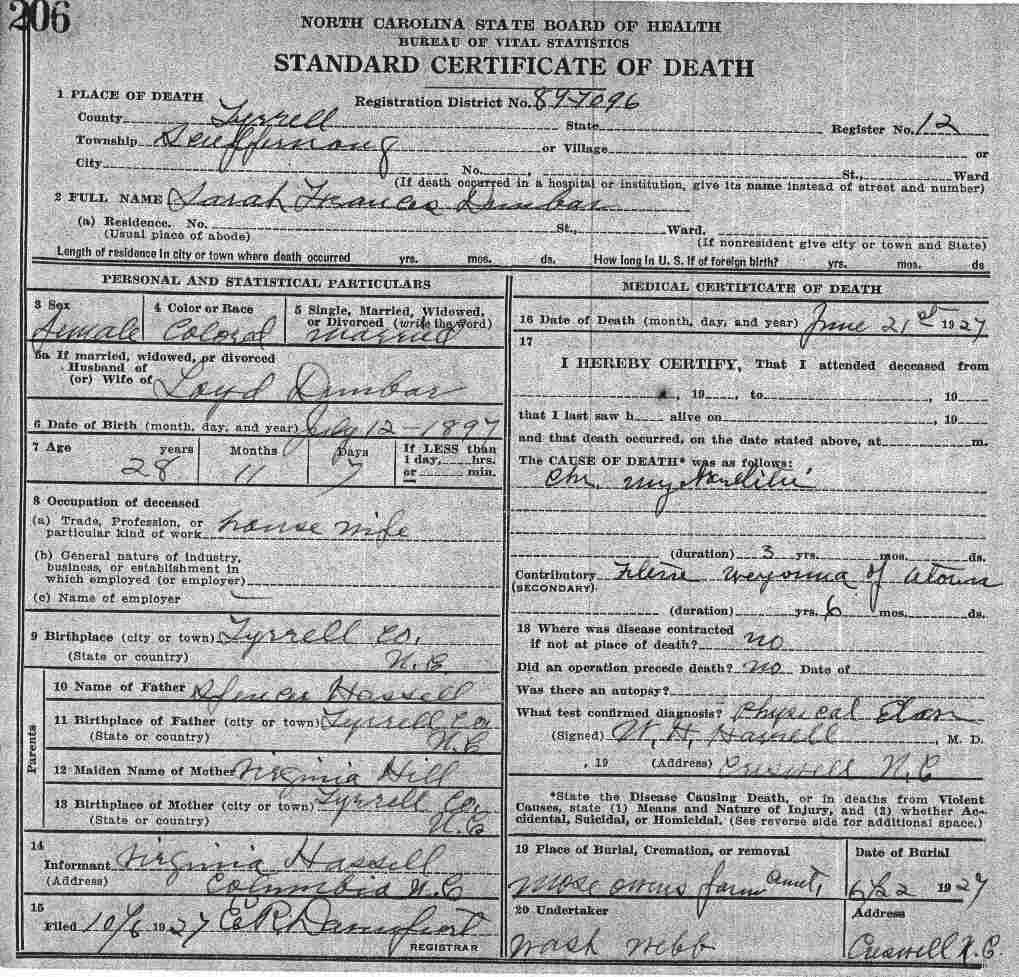 206
NORTH CAROLINA STATE BOARD OF HEALTH
BUREAU OF VITAL STATISTICS
STANDARD CERTIFICATE OF DEATH
1 PLACE OF DEATH Registration District No. 897096
County Tyrrell State Register No. 12
Township or Village or
City No. , St., Ward
(If death occurred in a hospital or institution, give its name instead of street and number)
2 FULL NAME Sarah Frances Dunbar
(a) Residence. No. St., Ward.
(Usual place of abode) (If nonresident give city or town and State)
Length of residence in city or town where death occurred yrs. mos. ds. How long in U. S. if of foreign birth? yrs. mos. ds
PERSONAL AND STATISTICAL PARTICULARS
3 Sex 4 Color or Race 5 Single, Married, Widowed, or Divorced (write the word)
Female Colored Married
5a If married, widowed, or divorced
Husband of
(or) Wife of Loyd Dunbar
6 Date of Birth (month, day, and year) July 12 - 1897
7 Age years Months Days If LESS than
1 day, hrs.
or min.
28 11 7
8 Occupation of deceased
(a) Trade, Profession, or
particular kind of work house wife
(b) General nature of industry,
business, or establishment in
which employed (or employer)
(c) Name of employer
9 Birthplace (city or town) Tyrrell Co.
(State or country) N.C.
Parents
10 Name of Father Spencer Hassell
11 Birthplace of Father (city or town) Tyrrell Co
(State or country) N.C
12 Maiden Name of Mother Virginia Hill
13 Birthplace of Mother (city or town) Tyrrell Co.
(State or country) N.C
14
Informant Virginia Hassell
(Address) Columbia N.C
15
Filed 10/6 1927
REGISTRAR
MEDICAL CERTIFICATE OF DEATH
16 Date of Death (month, day, and year) June 21st 1927
17
I HEREBY CERTIFY, That I attended deceased from
, 19 , to , 19
that I last saw h alive on , 19
and that death occurred, on the date stated above, at m.
The CAUSE OF DEATH* was as follows:
Chr.
(duration) 3 yrs. mos. ds.
Contributory of
(SECONDARY)
(duration) yrs. 6 mos. ds.
18 Where was disease contracted
if not at place of death? no
Did an operation precede death? no Date of
Was there an autopsy?
What test confirmed diagnosis? Physical
(Signed) W. H. , M. D.
, 19 (Address) Creswell N.C
*State the Disease Causing Death, or in deaths from Violent
Causes, state (1) Means and Nature of Injury, and (2) whether Ac-
cidental, Suicidal, or Homicidal. (See reverse side for additional space.)
19 Place of Burial, Cremation, or removal Date of Burial
Mose Owens farm 6/22 1927
20 Undertaker Address
Wash Webb Creswell N.C.